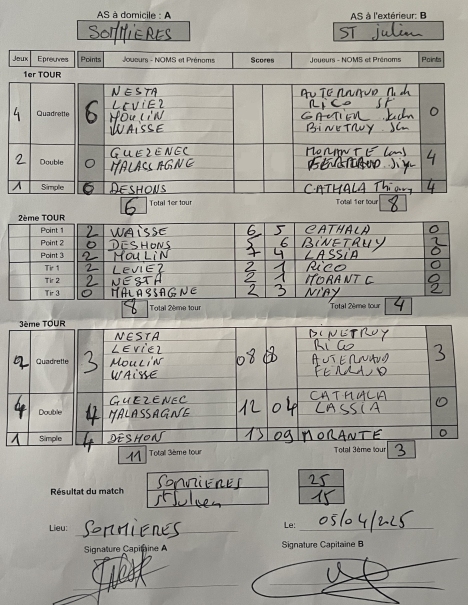 AS à domicile : A AS à l'extérieur: B
SOMMIERES ST julien
Jeux Epreuves Points Joueurs - NOMS et Prénoms Scores Joueurs - NOMS et Prénoms Points
1er TOUR
4 Quadrette 6 NESTA AUTERNAUD 0
LEVIEZ RICO St
MOULIN GAUTIER
WAISSE BINETRUY
2 Double 0 GUEZENEC MORANTE 4
MALASSAGNE FERRAUD
1 Simple 0 DESHONS CATHALA Thierry 4
6 Total 1er tour Total 1er tour 8
2ème TOUR
Point 1 2 WAISSE 6 5 CATHALA 0
Point 2 0 DESHONS 5 6 BINETRUY 2
Point 3 2 MOULIN 7 4 LASSIA 0
Tir 1 2 LEVIEZ 2 1 RICO 0
Tir 2 2 NESTA 2 1 MORANTE 0
Tir 3 0 MALASSAGNE 2 3 NIAY 2
8 Total 2ème tour Total 2ème tour 4
3ème TOUR
Quadrette 3 NESTA 08 8 BINETRUY 3
LEVIEZ RICO
MOULIN AUTERNAUD
WAISSE FERRAUD
Double 4 GUEZENEC 12 04 CATHALA 0
MALASSAGNE LASSIA
1 Simple 4 DESHON 13 09 MORANTE 0
11 Total 3ème tour Total 3ème tour 3
Résultat du match SOMMIERES 25
St Julien 15
Lieu: SOMMIERES Le: 05/04/2025
Signature Capitaine A Signature Capitaine B